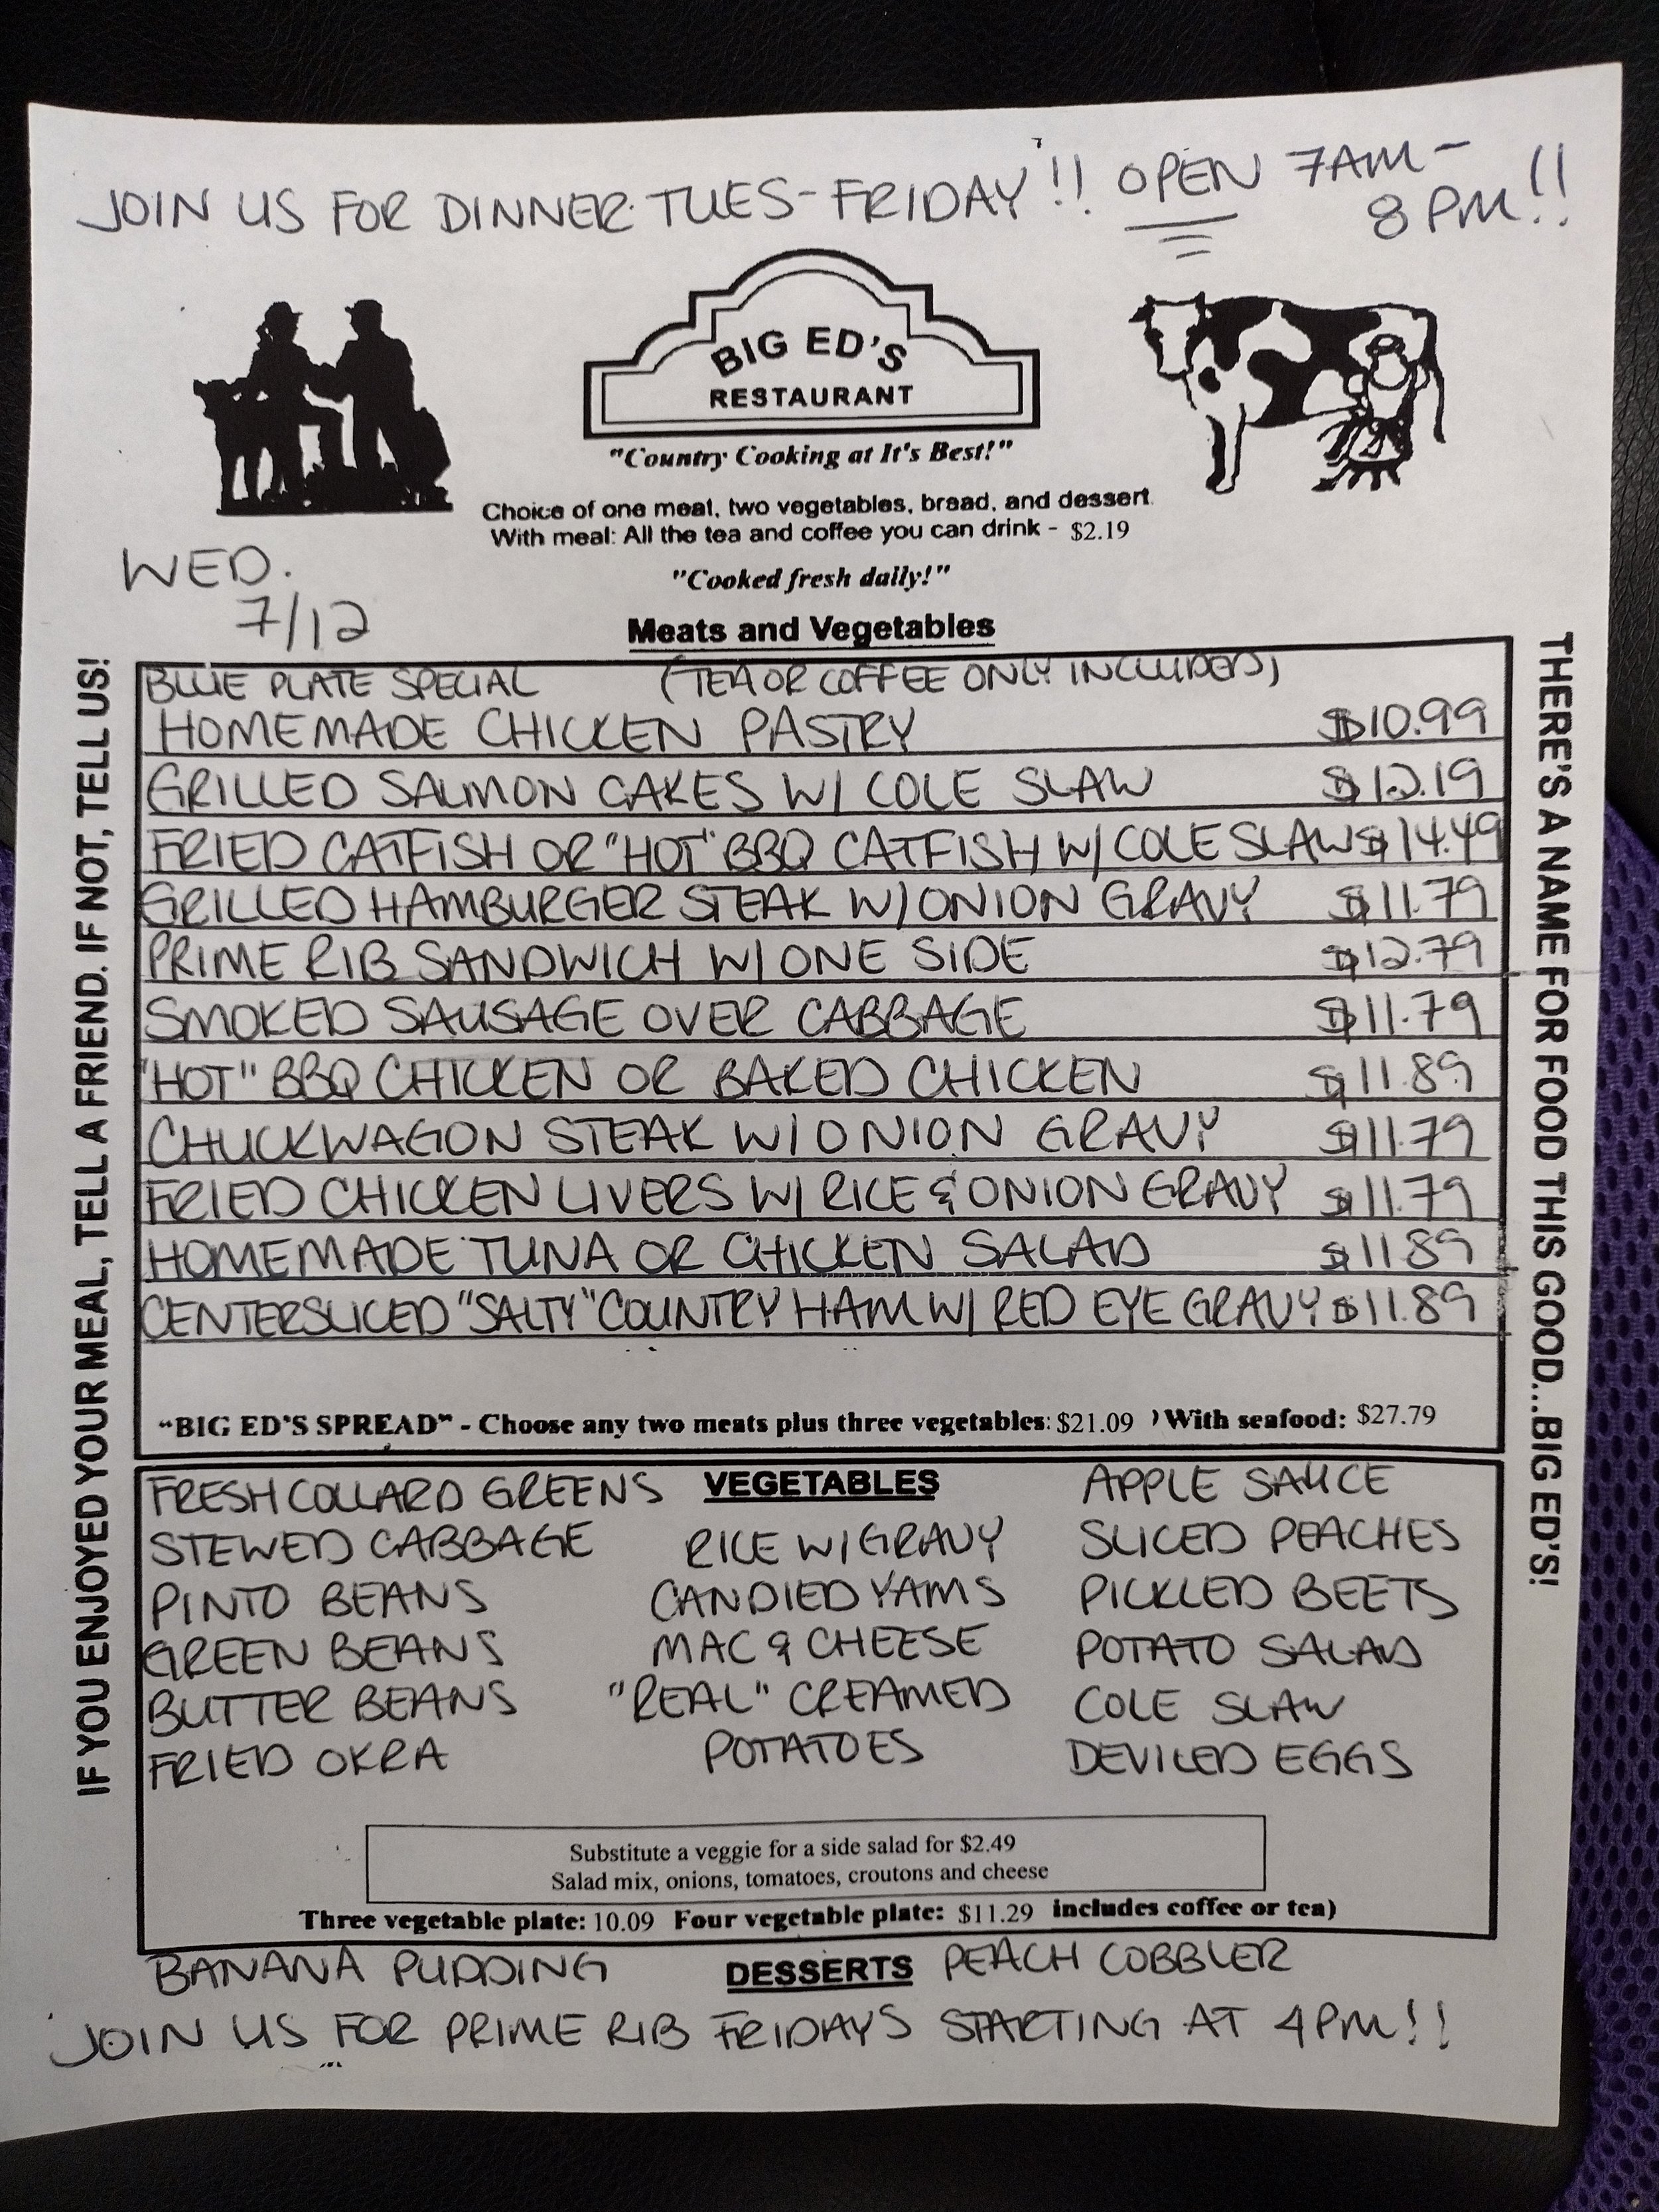 JOIN US FOR DINNER TUES-FRIDAY!! OPEN 7AM-
8PM!!
BIG ED'S
RESTAURANT
"Country Cooking at It's Best!"
Choice of one meat, two vegetables, bread, and dessert
With meal: All the tea and coffee you can drink - $2.19
WED.
7/12
"Cooked fresh daily!"
Meats and Vegetables
IF YOU ENJOYED YOUR MEAL, TELL A FRIEND. IF NOT, TELL US!
BLUE PLATE SPECIAL (TEA OR COFFEE ONLY INCLUDED)
HOMEMADE CHICKEN PASTRY $10.99
GRILLED SALMON CAKES W/ COLE SLAW $12.19
FRIED CATFISH OR "HOT" BBQ CATFISH W/ COLE SLAW $14.49
GRILLED HAMBURGER STEAK W/ ONION GRAVY $11.79
PRIME RIB SANDWICH W/ ONE SIDE $12.79
SMOKED SAUSAGE OVER CABBAGE $11.79
"HOT" BBQ CHICKEN OR BAKED CHICKEN $11.89
CHUCKWAGON STEAK W/ ONION GRAVY $11.79
FRIED CHICKEN LIVERS W/ RICE & ONION GRAVY $11.79
HOMEMADE TUNA OR CHICKEN SALAD $11.89
CENTERSLICED "SALTY" COUNTRY HAM W/ RED EYE GRAVY $11.89
"BIG ED'S SPREAD" - Choose any two meats plus three vegetables: $21.09 ) With seafood: $27.79
THERE'S A NAME FOR FOOD THIS GOOD...BIG ED'S!
VEGETABLES
FRESH COLLARD GREENS
STEWED CABBAGE
PINTO BEANS
GREEN BEANS
BUTTER BEANS
FRIED OKRA
RICE W/ GRAVY
CANDIED YAMS
MAC & CHEESE
"REAL" CREAMED
POTATOES
APPLE SAUCE
SLICED PEACHES
PICKLED BEETS
POTATO SALAD
COLE SLAW
DEVILED EGGS
Substitute a veggie for a side salad for $2.49
Salad mix, onions, tomatoes, croutons and cheese
Three vegetable plate: 10.09 Four vegetable plate: $11.29 includes coffee or tea)
BANANA PUDDING DESSERTS PEACH COBBLER
JOIN US FOR PRIME RIB FRIDAYS STARTING AT 4PM!!